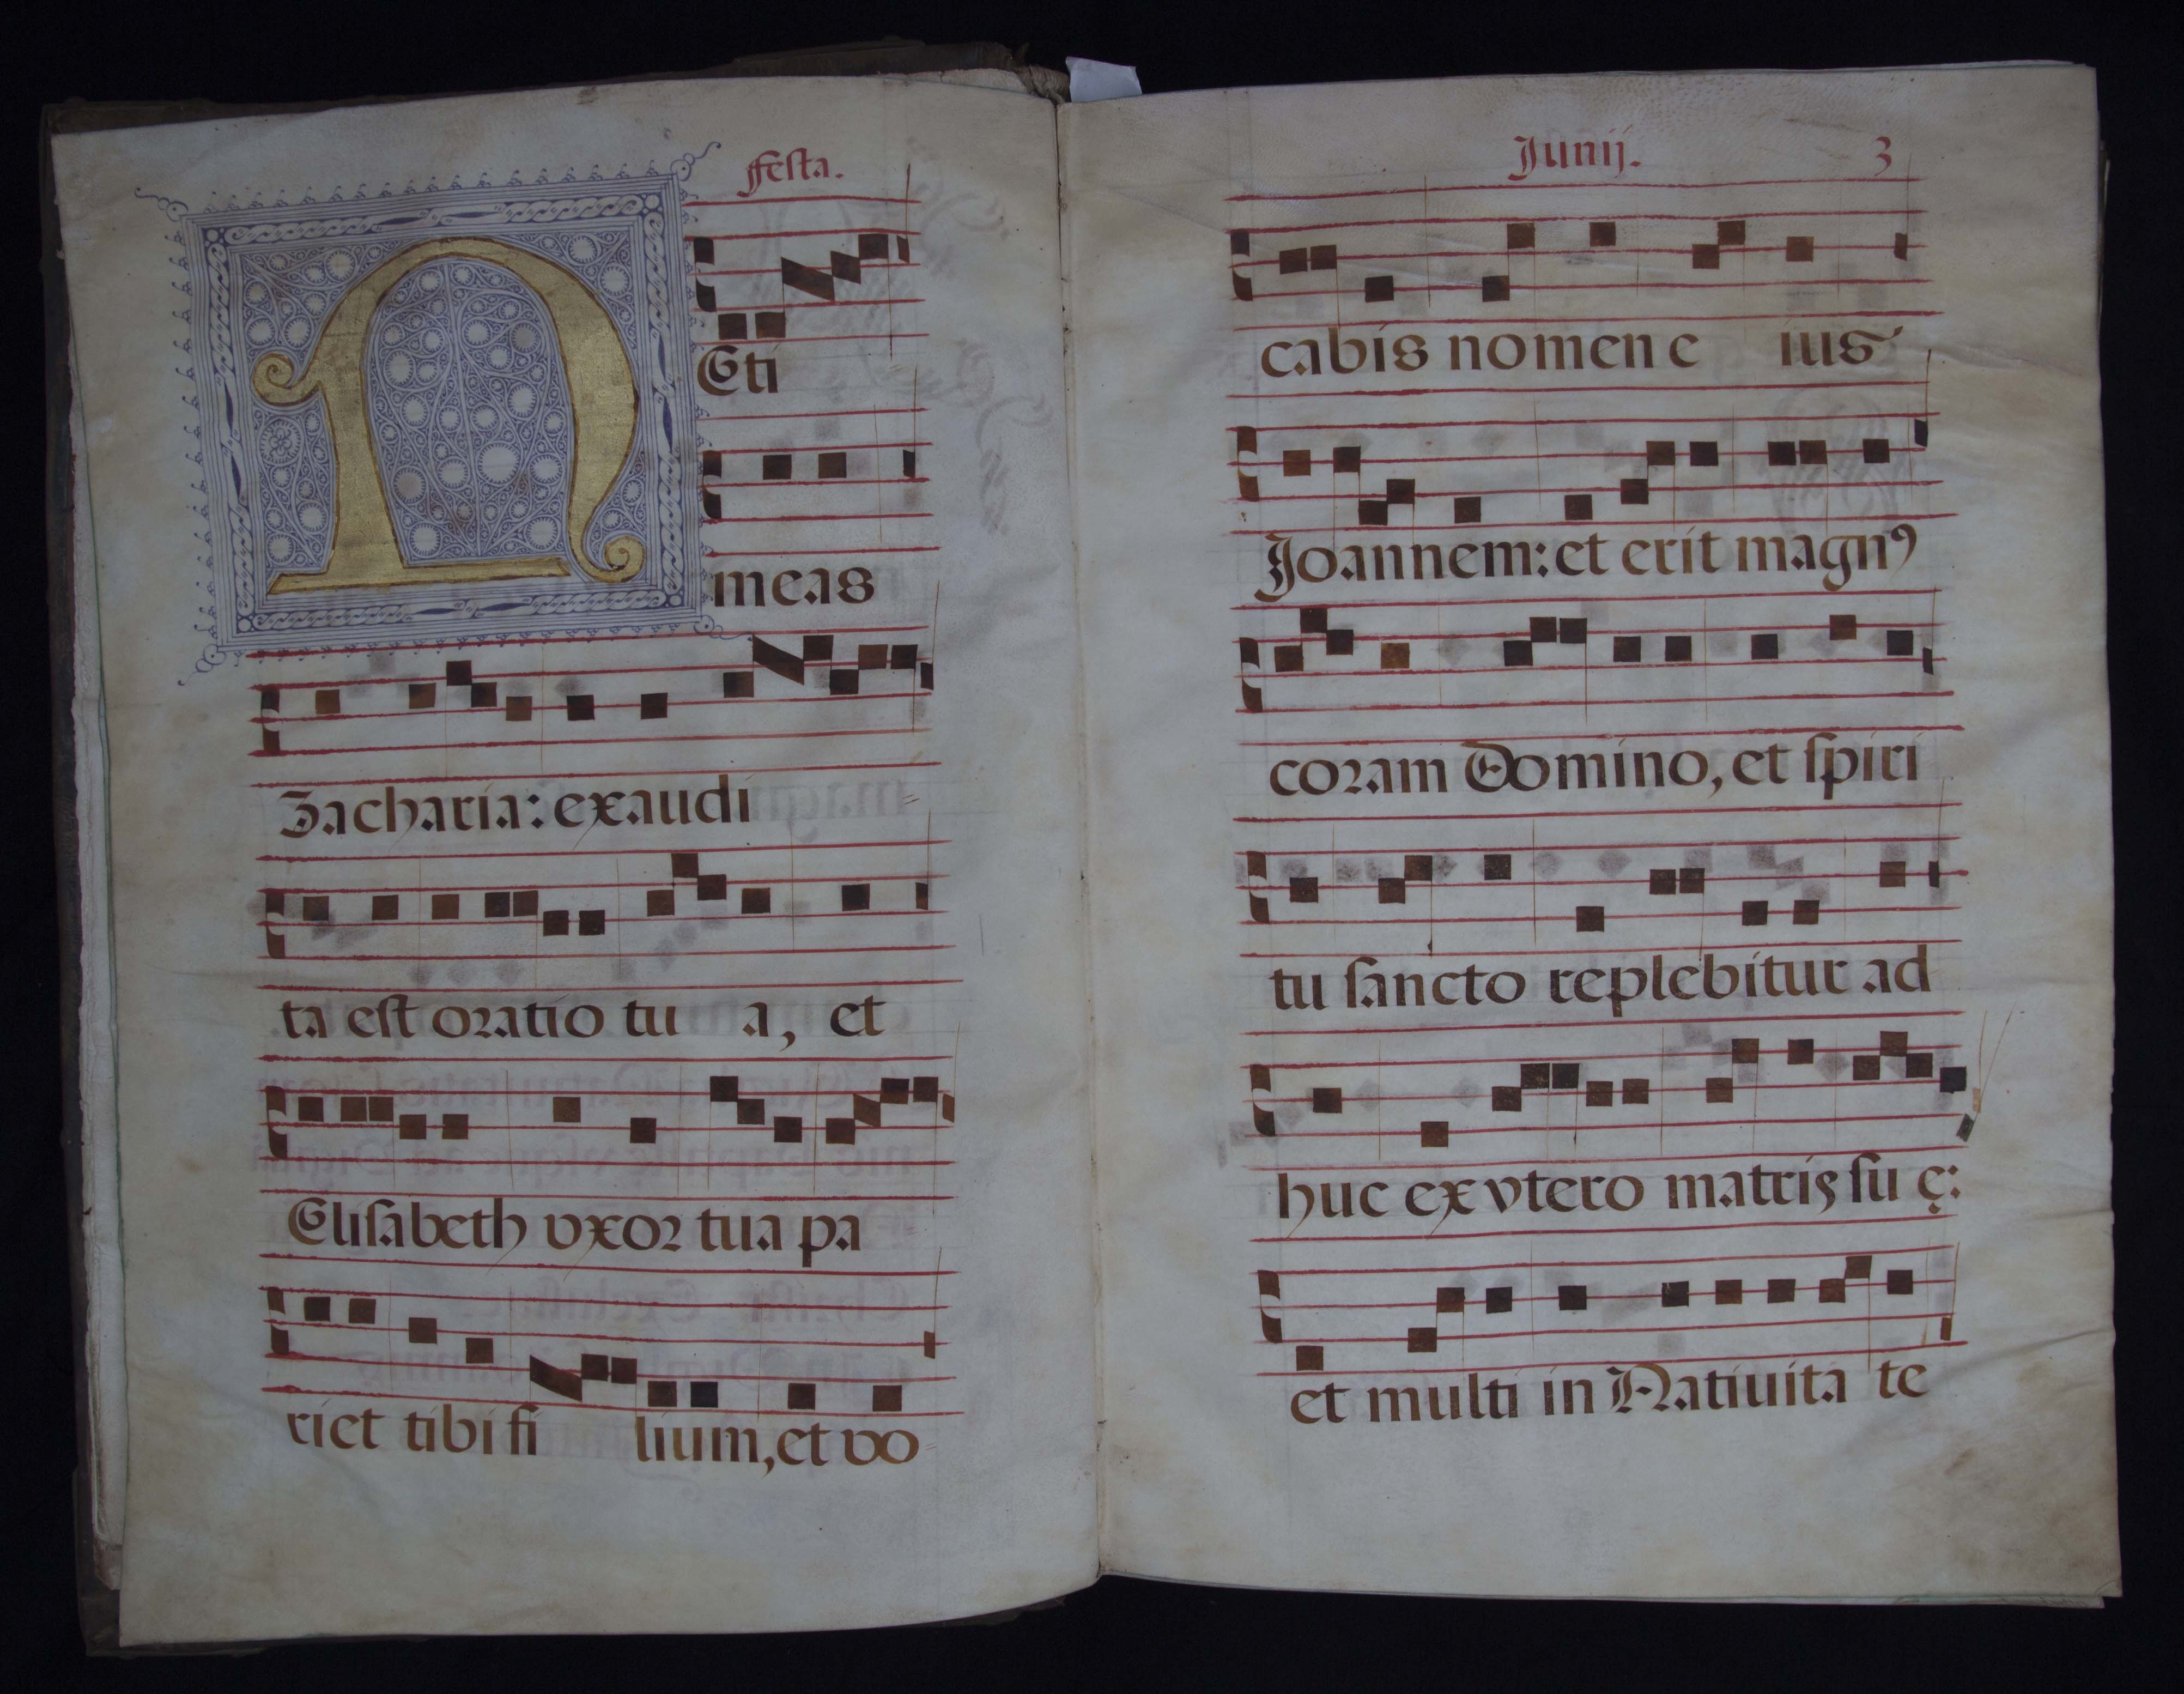 ffesta.
N
Eti
meas
Zacharia: exaudi
ta est oratio tu a, et
Elisabeth vxor tua pa
riet tibi fi lium, et vo
Junij. 3
cabis nomen e ius
Joannem: et erit magnꝰ
coram Domino, et spiri
tu sancto replebitur ad
huc ex vtero matris su ę:
et multi in Natiuita te